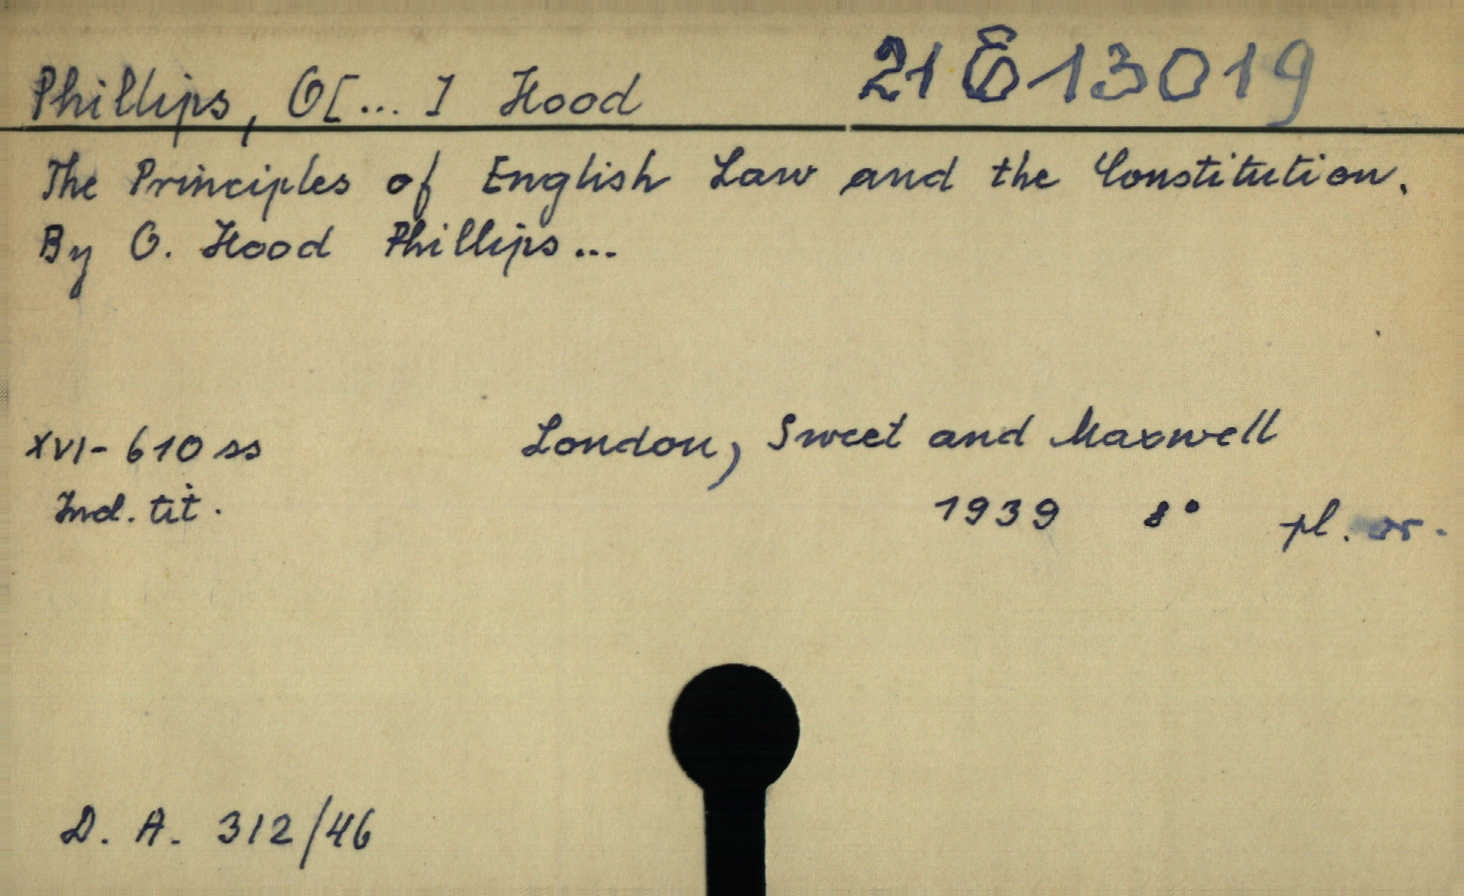 Phillips, O[...] Hood
21 E 13019
The Principles of English Law and the Constitution.
By O. Hood Phillips...
XVI-610 ss
London, Sweet and Maxwell
Ind. tit.
1939 8° pl. or.
D. A. 312/46